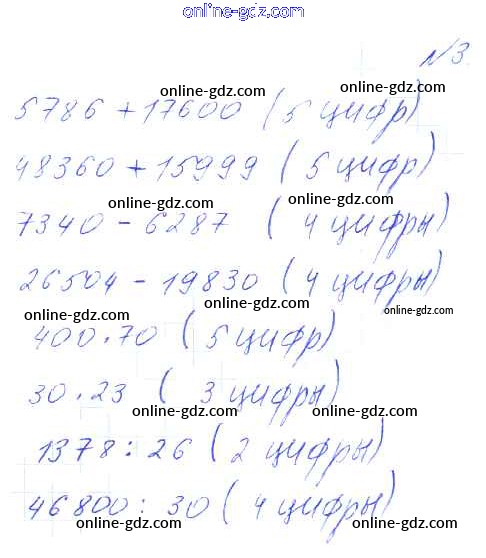 online-gdz.com
№3.
online-gdz.com
5786 + 17600 (5 цифр)
online-gdz.com
48360 + 15999 (5 цифр)
online-gdz.com
7340 - 6287 (4 цифры)
online-gdz.com
26504 - 19830 (4 цифры)
online-gdz.com
400 · 70 (5 цифр)
online-gdz.com
30 · 23 (3 цифры)
online-gdz.com
1378 : 26 (2 цифры)
online-gdz.com
46800 : 30 (4 цифры)
online-gdz.com
online-gdz.com